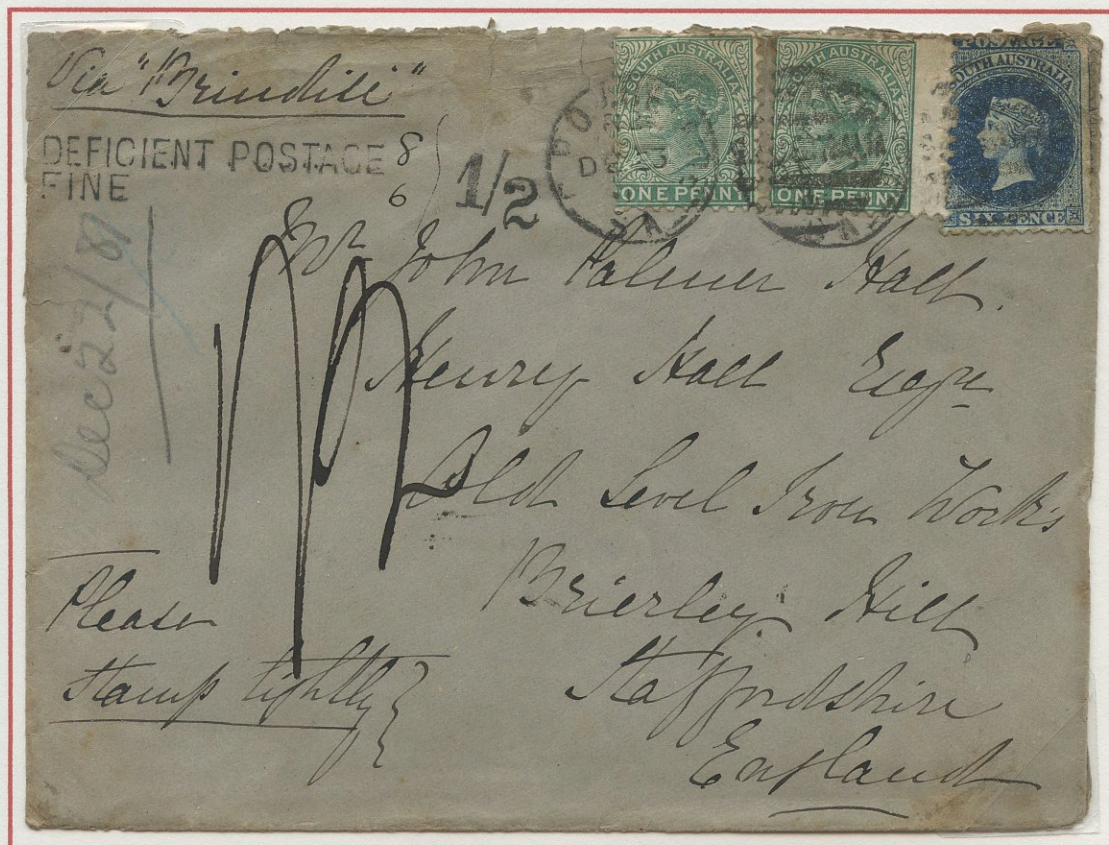 Via "Brindisi"
DEFICIENT POSTAGE 8
FINE 6
1/2
SOUTH AUSTRALIA
ONE PENNY
SOUTH AUSTRALIA
ONE PENNY
POSTAGE
SOUTH AUSTRALIA
SIX PENCE
DE 3
SA
Dec 22/81
Mr John Palmer Hall
Henry Hall Esqre
Old Level Iron Works
Brierley Hill
Staffordshire
England
Please
Stamp lightly